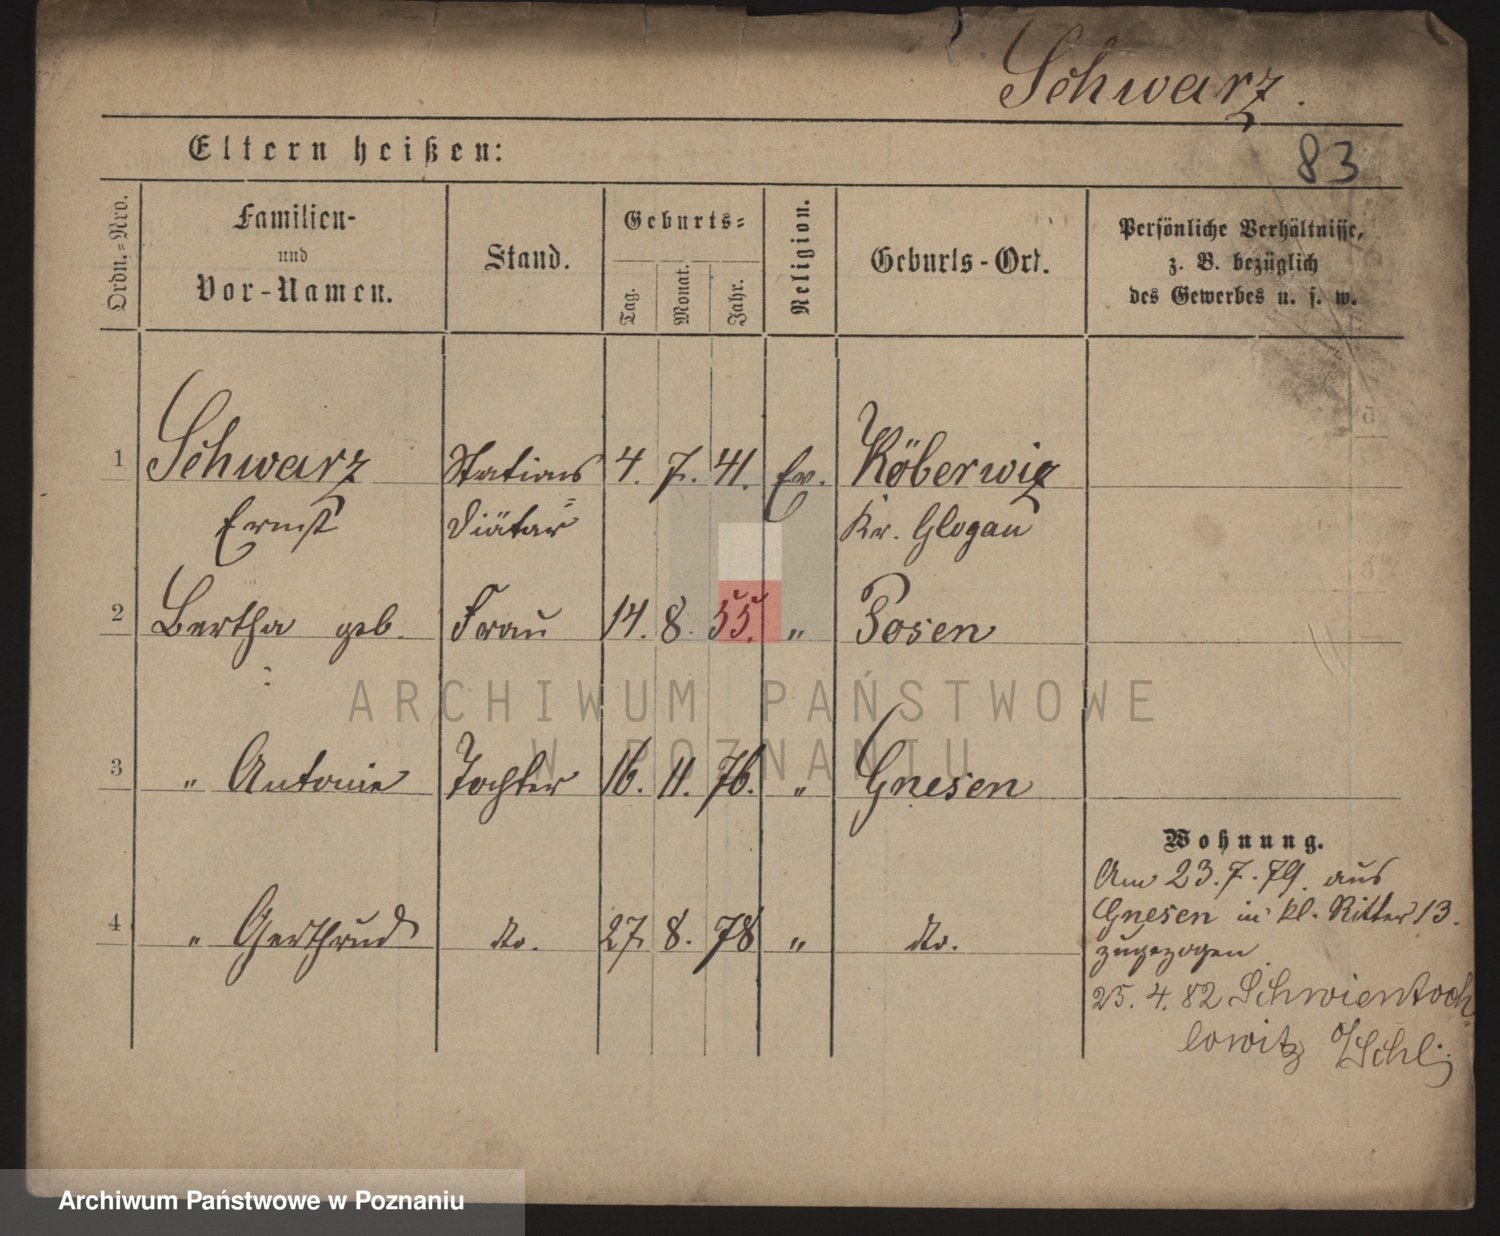 Schwarz.
Eltern heißen:
83
Ordn.=Nro.
Familien-
und
Vor-Namen.
Stand.
Geburts=
Tag.
Monat.
Jahr.
Religion.
Geburts-Ort.
Persönliche Verhältnisse,
z. B. bezüglich
des Gewerbes u. s. w.
1 Schwarz Stations 4. 7. 41. Ev. Köberwig
Ernst Diätar Kr. Glogau
2 Bertha geb. Frau 14. 8. 55. " Posen
?
3 " Antonie Tochter 16. 11. 76. " Gnesen
4 " Gerthrud do. 27. 8. 78 " do.
Wohnung.
Am 23.7.79. aus
Gnesen in kl. Ritter 13.
zugezogen
25. 4. 82 Schwientoch
lowitz O/Schl.
ARCHIWUM PAŃSTWOWE
W POZNANIU
Archiwum Państwowe w Poznaniu